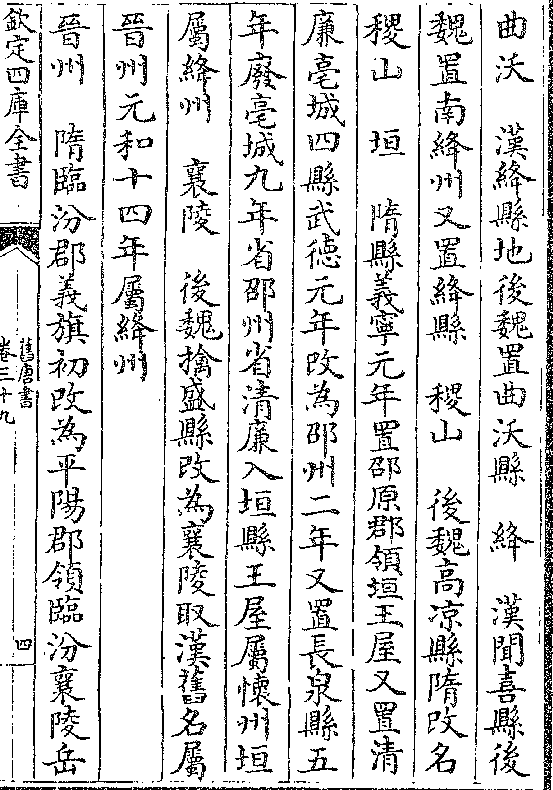 曲沃　漢絳縣地後魏置曲沃縣　絳　漢聞喜縣後
魏置南絳州又置絳縣　稷山　後魏高涼縣隋改名
稷山　垣　隋縣義寧元年置邵原郡領垣王屋又置清
廉亳城四縣武德元年改為邵州二年又置長泉縣五
年廢亳城九年省邵州省清廉入垣縣王屋屬懷州垣
屬絳州　襄陵　後魏擒盛縣改為襄陵取漢舊名屬
晉州元和十四年屬絳州
晉州　隋臨汾郡義旗初改為平陽郡領臨汾襄陵岳
欽定四庫全書
舊唐書
卷三十九
四